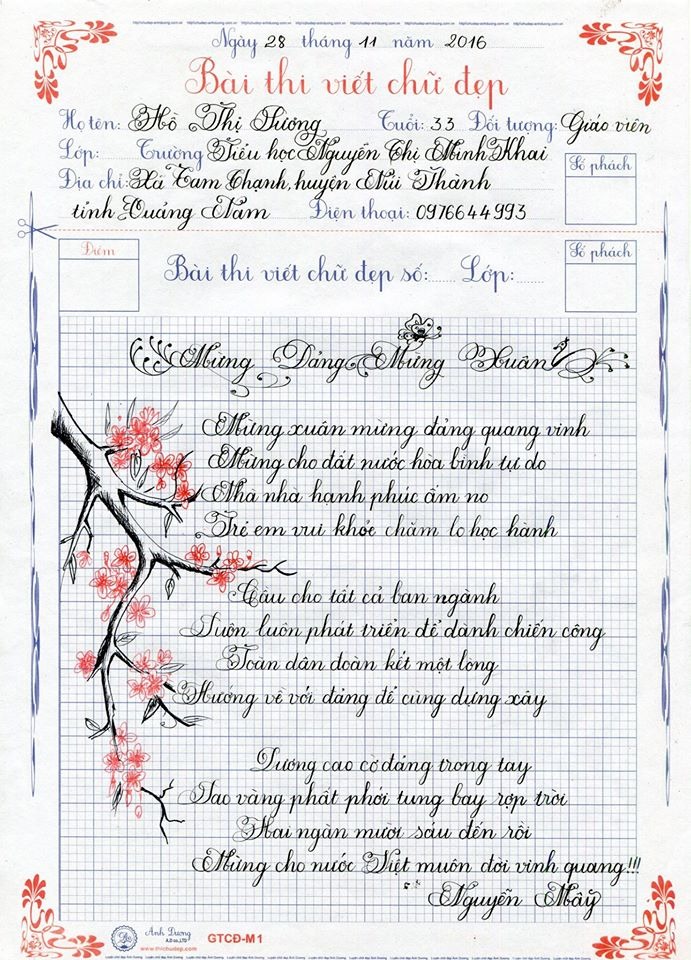 Ngày 28 tháng 11 năm 2016
Bài thi viết chữ đẹp
Họ tên: Hồ Thị Sương Tuổi: 33 Đối tượng: Giáo viên
Lớp: Trường Tiểu học Nguyễn Thị Minh Khai
Số phách
Địa chỉ: Xã Tam Thạnh, huyện Núi Thành
tỉnh Quảng Nam Điện thoại: 0976644993
Điểm
Bài thi viết chữ đẹp số: Lớp:
Số phách
Mừng Đảng Mừng Xuân
Mừng xuân mừng đảng quang vinh
Mừng cho đất nước hòa bình tự do
Nhà nhà hạnh phúc ấm no
Trẻ em vui khỏe chăm lo học hành
Cầu cho tất cả ban ngành
Luôn luôn phát triển để dành chiến công
Toàn dân đoàn kết một lòng
Hướng về với đảng để cùng dựng xây
Dương cao cờ đảng trong tay
Sao vàng phất phới tung bay rợp trời
Hai ngàn mười sáu đến rồi
Mừng cho nước Việt muôn đời vinh quang!!!
Nguyễn Mây
Anh Dương
A.D co.,LTD
www.thichudep.com
GTCĐ-M1